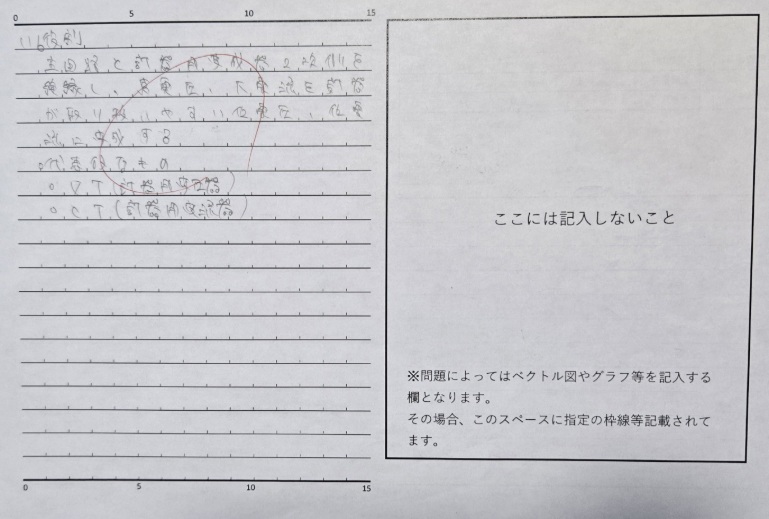 0 5 10 15
(1)。役割
主回路と計器用変成器2次側を
絶縁し、高電圧、大電流を計器
が取り扱いやすい低電圧、低電
流に変成する
。代表的なもの
。VT(計器用変圧器)
。CT(計器用変流器)
0 5 10 15
ここには記入しないこと
※問題によってはベクトル図やグラフ等を記入する
欄となります。
その場合、このスペースに指定の枠線等記載されて
ます。